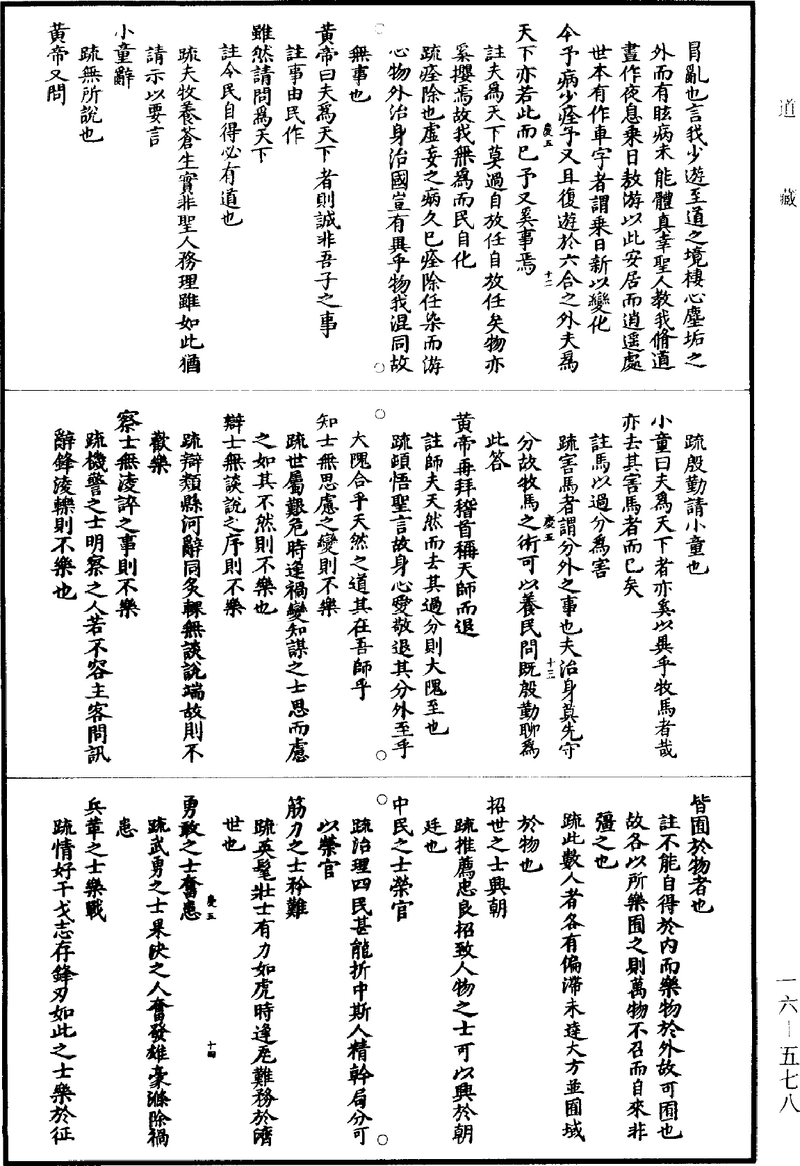 道藏
冒亂也言我少遊至道之境棲心塵垢之
外而有眩病未能體真幸聖人教我脩道
晝作夜息乘日敖游以此安居而逍遥處
世本有作車字者謂乘日新以變化
今予病少痊予又且復遊於六合之外夫爲
天下亦若此而已予又奚事焉
慶五
十二
註夫爲天下莫過自放任自放任矣物亦
奚攖焉故我無爲而民自化
疏痊除也虛妄之病久已痊除任染而游
心物外治身治國豈有異乎物我混同故
無事也
黃帝曰夫爲天下者則誠非吾子之事
註事由民作
雖然請問爲天下
註今民自得必有道也
疏夫牧養蒼生實非聖人務理雖如此猶
請示以要言
小童辭
疏無所說也
黃帝又問
疏殷勤請小童也
小童曰夫爲天下者亦奚以異乎牧馬者哉
亦去其害馬者而已矣
註馬以過分爲害
疏害馬者謂分外之事也夫治身莫先守
慶五
十三
分故牧馬之術可以養民問既殷勤聊爲
此答
黃帝再拜稽首稱天師而退
註師夫天然而去其過分則大隗至也
疏頭悟聖言故身心愛敬退其分外至乎
大隗合乎天然之道其在吾師乎
知士無思慮之變則不樂
疏世屬艱危時逢禍變知謀之士思而慮
之如其不然則不樂也
辯士無談說之序則不樂
疏辯類縣河辭同炙輠無談說端故則不
歡樂
察士無淩誶之事則不樂
疏機警之士明察之人若不容主客問訊
辭鋒淩轢則不樂也
皆囿於物者也
註不能自得於內而樂物於外故可囿也
故各以所樂囿之則萬物不召而自來非
彊之也
疏此數人者各有偏滯未達大方並囿域
於物也
招世之士興朝
疏推薦忠良招致人物之士可以興於朝
廷也
中民之士榮官
疏治理四民甚能折中斯人精幹局分可
以榮官
筋力之士矜難
疏英髦壯士有力如虎時逢厄難務於濟
世也
勇敢之士奮患
慶五
十四
疏武勇之士果決之人奮發雄豪滌除禍
患
兵革之士樂戰
疏情好干戈志存鋒刃如此之士樂於征
一六—五七八